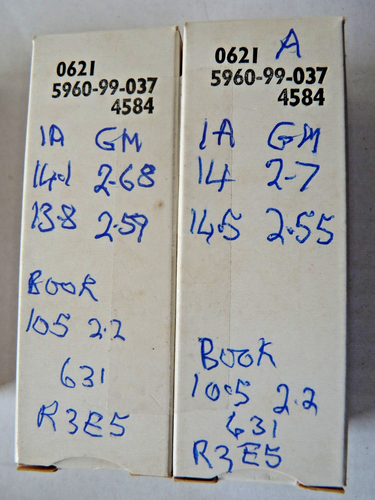 0621
5960-99-037
4584
IA GM
14.1 2.68
13.8 2.59
BOOK
105 2.2
631
R3E5
0621 A
5960-99-037
4584
IA GM
14 2-7
14.5 2.55
BOOK
10.5 2.2
631
R3E5